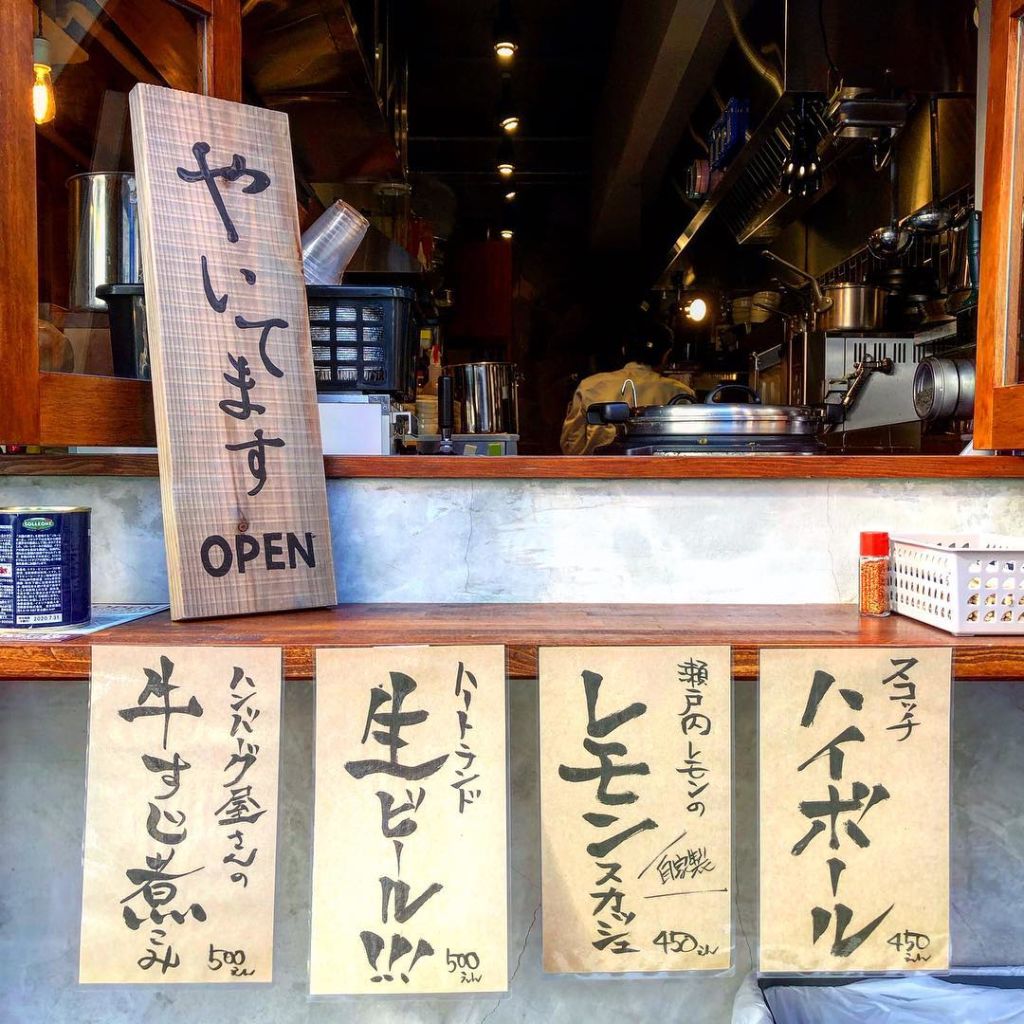 やいてます
OPEN
SOLLEONE
2020.7.31
ハンバーグ屋さんの
牛すじ煮こみ
500えん
ハートランド
生ビール!!!
500えん
瀬戸内レモンの
自家製
レモンスカッシュ
450えん
スコッチ
ハイボール
450えん